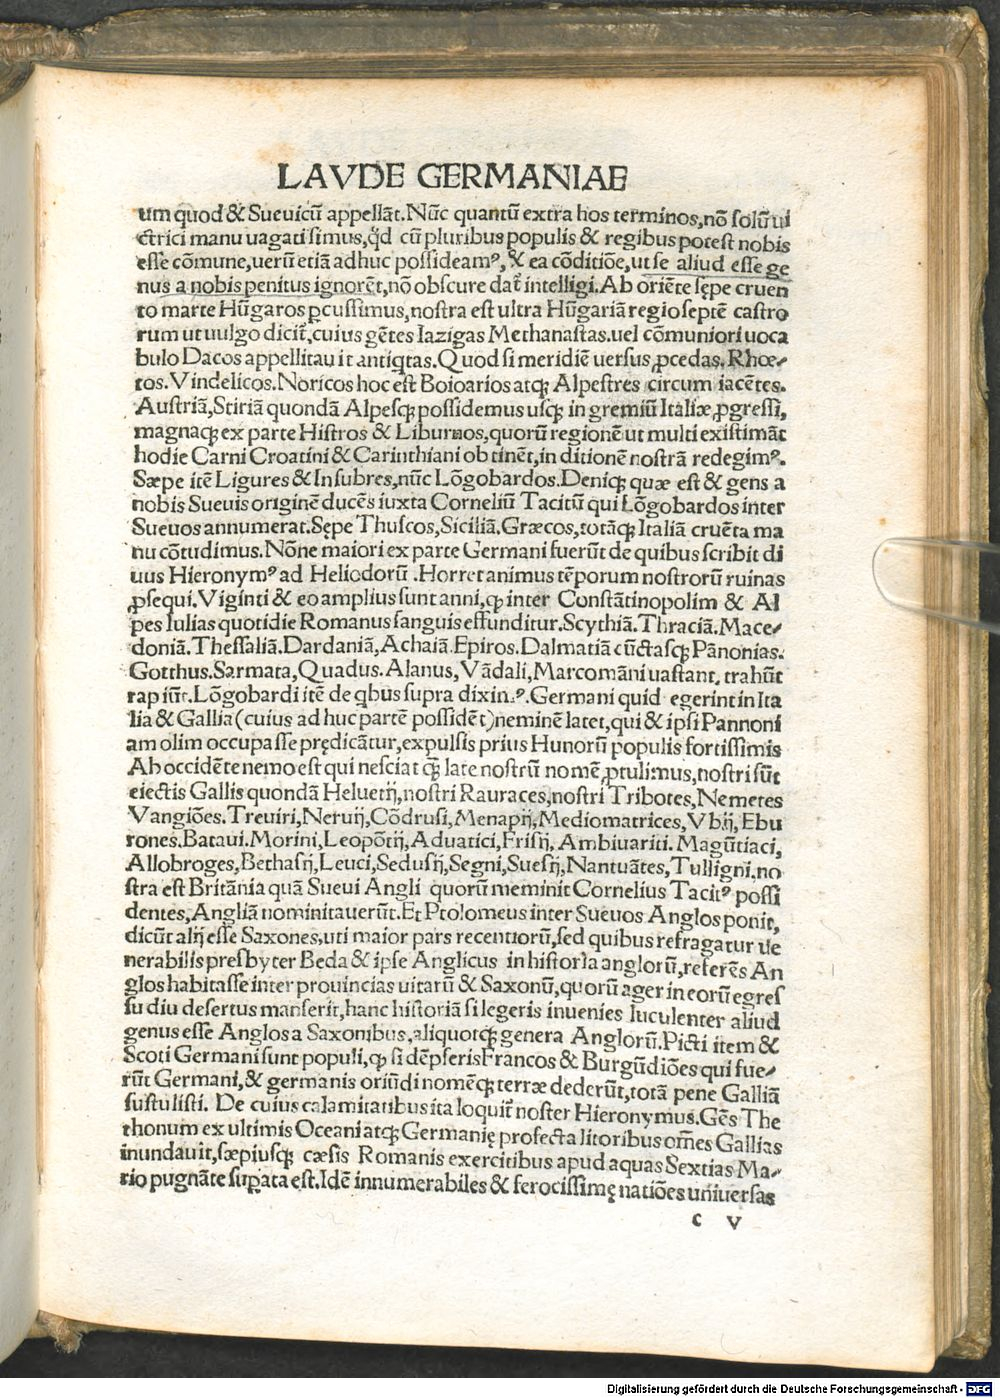 LAVDE GERMANIAE
um quod & Sueuicū appellāt. Nūc quantū extra hos terminos, nō solū ui
ctrici manu uagati simus, qd̄ cū pluribus populis & regibus potest nobis
esse cōmune, uerū etiā adhuc possideamꝰ, & ea cōditiōe, ut se aliud esse ge
nus a nobis penitus ignorēt, nō obscure dat̄ intelligi. Ab oriēte sępe cruen
to marte Hūgaros ꝑcussimus, nostra est ultra Hūgariā regio septē castro
rum ut uulgo dicit̄, cuius gētes Iazigas Methanastas. uel cōmuniori uoca
bulo Dacos appellitauit antiq̄tas. Quod si meridiē uersus ꝓcedas. Rhœ⸗
tos. Vindelicos. Noricos hoc est Boioarios atqꝫ Alpestres circum iacētes.
Austriā, Stiriā quondā Alpesqꝫ possidemus usqꝫ in gremiū Italiæ ꝓgressi,
magnaqꝫ ex parte Histros & Liburnos, quorū regionē ut multi existimāt
hodie Carni Croatini & Carinthiani obtinēt, in ditionē nostrā redegimꝰ.
Sæpe itē Ligures & Insubres, nūc Lōgobardos. Deniqꝫ quæ est & gens a
nobis Sueuis originē ducēs iuxta Corneliū Tacitū qui Lōgobardos inter
Sueuos annumerat. Sępe Thuscos, Siciliā. Græcos, totāqꝫ Italiā cruēta ma
nu cōtudimus. Nōne maiori ex parte Germani fuerūt de quibus scribit di
uus Hieronymꝰ ad Heliodorū. Horret animus tēporum nostrorū ruinas
ꝓsequi. Viginti & eo amplius sunt anni, ꝙ inter Constātinopolim & Al
pes Iulias quotidie Romanus sanguis effunditur. Scythiā. Thraciā. Mace⸗
doniā. Thessaliā. Dardaniā, Achaiā. Epiros. Dalmatiā cūctasqꝫ Pānonias.
Gotthus. Sarmata, Quadus. Alanus, Vādali, Marcomāni uastant, trahūt
rapiūt. Lōgobardi itē de qbus supra diximꝰ. Germani quid egerint in Ita
lia & Gallia (cuius ad huc partē possidēt) neminē latet, qui & ipsi Pannoni
am olim occupasse prędicātur, expulsis prius Hunorū populis fortissimis
Ab occidēte nemo est qui nesciat ꝙ̄ late nostrū nomē ꝓtulimus, nostri sūt
eiectis Gallis quondā Heluetij, nostri Rauraces, nostri Tribotes, Nemetes
Vangiōes. Treuiri, Neruij, Cōdrusi, Menapij, Mediomatrices, Vbij, Ebu
rones. Bataui. Morini, Leopōtij, Aduatici, Frisij, Ambiuariti. Magūtiaci,
Allobroges, Bethasij, Leuci, Sedusij, Segni, Suesij, Nantuātes, Tulligni, no
stra est Britānia quā Sueui Angli quorū meminit Cornelius Tacitꝰ possi
dentes, Angliā nominitauerūt. Et Ptolomeus inter Sueuos Anglos ponit,
dicūt alij esse Saxones, uti maior pars recentiorū, sed quibus refragatur ue
nerabilis presbyter Beda & ipse Anglicus in historia anglorū, referēs An
glos habitasse inter prouincias uitarū & Saxonū, quorū ager in eorū egres
su diu desertus manserit, hanc historiā si legeris inuenies luculenter aliud
genus esse Anglos a Saxonibus, aliquotqꝫ genera Anglorū. Picti item &
Scoti Germani sunt populi, ꝙ si dēpseris Francos & Burgūdiōes qui fue⸗
rūt Germani, & germanis oriūdi nomēqꝫ terræ dederūt, totā pene Galliā
sustulisti. De cuius calamitatibus ita loquit̄ noster Hieronymus. Gēs The
thonum ex ultimis Oceani atqꝫ Germanię profecta litoribus om̄es Gallias
inundauit, sæpiusqꝫ cæsis Romanis exercitibus apud aquas Sextias Ma⸗
rio pugnāte supata est. Idē innumerabiles & ferocissimę natiōes uniuersas
c v
Digitalisierung gefördert durch die Deutsche Forschungsgemeinschaft - DFG